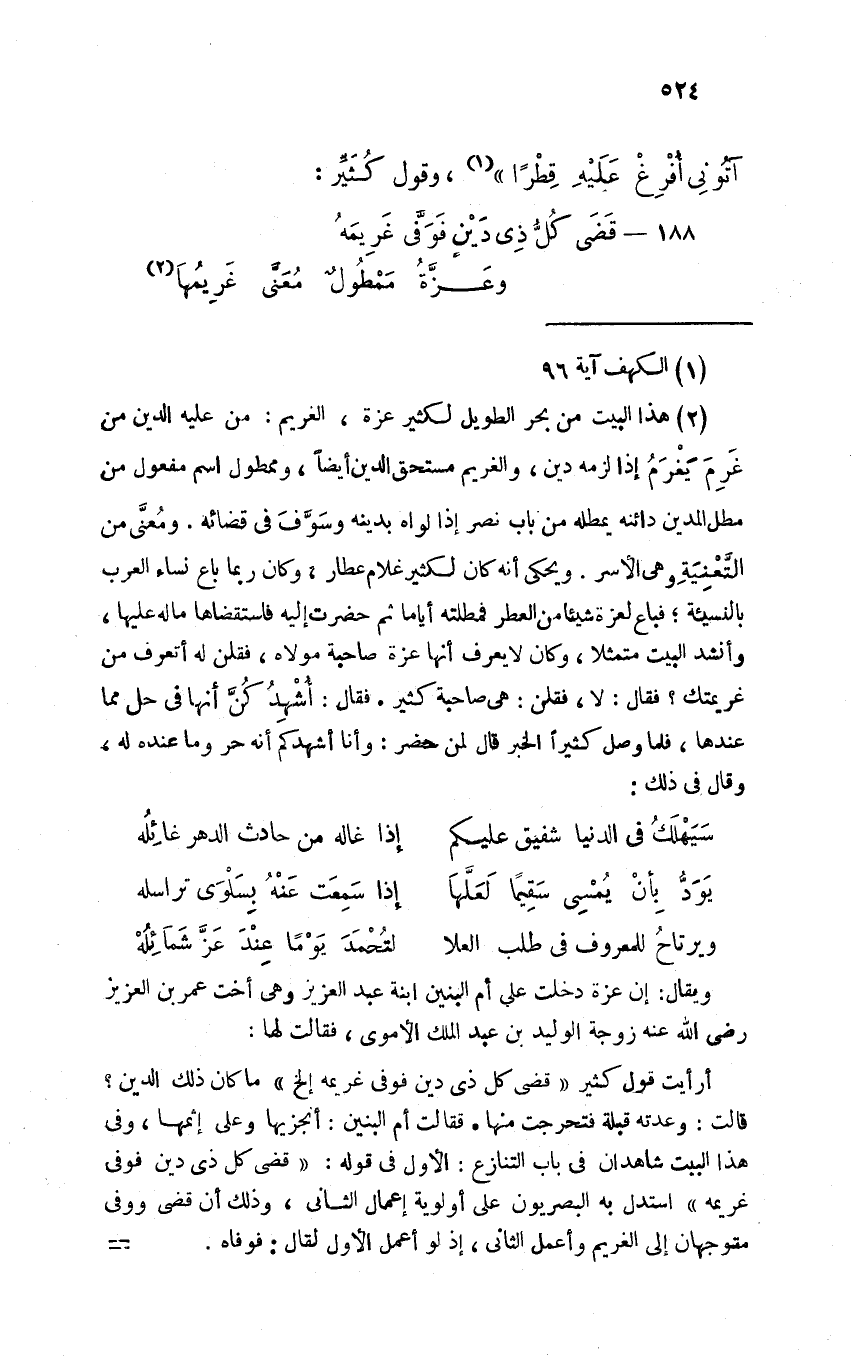 ٥٢٤
آتُونِي أُفْرِغْ عَلَيْهِ قِطْرًا » (١) ، وقول كُثَيِّر :
١٨٨ — قَضَى كُلُّ ذِى دَيْنٍ فَوَفَّى غَرِيمَهُ
وعَــزَّةُ مَمْطُولٌ مُعَنًّى غَرِيمُها (٢)
(١) الكهف آية ٩٦
(٢) هذا البيت من بحر الطويل لكثير عزة ، الغريم : من عليه الدين من
غَرِمَ يَغْرَمُ إذا لزمه دين ، والغريم مستحق الدين أيضاً ، وممطول اسم مفعول من
مطل المدين دائنه يمطله من باب نصر إذا لواه بدينه وسَوَّفَ فى قضائه . ومُعَنًّى من
التَّعْنِيَةِ وهى الأسر . ويحكى أنه كان لكثير غلام عطار ، وكان ربما باع نساء العرب
بالنسيئة ؛ فباع لعزة شيئا من العطر فمطلته أياما ثم حضرت إليه فاستقضاها ماله عليها ،
وأنشد البيت متمثلا ، وكان لايعرف أنها عزة صاحبة مولاه ، فقلن له أتعرف من
غريمتك ؟ فقال : لا ، فقلن : هى صاحبة كثير . فقال : أُشْهِدُ كُنَّ أنها فى حل مما
عندها ، فلما وصل كثيراً الخبر قال لمن حضر : وأنا أشهدكم أنه حر وما عنده له ،
وقال فى ذلك :
سَيَهْلَكُ فى الدنيا شفيق عليكم إذا غاله من حادث الدهر غائِلُه
يَوَدُّ بِأَنْ يُمْسِى سَقِيمًا لَعَلَّهَا إذا سَمِعَت عَنْهُ بِسَلْوَى تراسله
ويرتاحُ للمعروف فى طلب العلا لتُحْمَدَ يَوْمًا عِنْدَ عَزَّ شَمَائِلُهْ
ويقال: إن عزة دخلت على أم البنين ابنة عبد العزيز وهى أخت عمر بن العزيز
رضى الله عنه زوجة الوليد بن عبد الملك الأموى ، فقالت لها :
أرأيت قول كثير « قضى كل ذى دين فوفى غريمه إلخ » ما كان ذلك الدين ؟
قالت : وعدته قبلة فتحرجت منها . فقالت أم البنين : أنجزيها وعلى إثمهـا ، وفى
هذا البيت شاهدان فى باب التنازع : الأول فى قوله : « قضى كل ذى دين فوفى
غريمه » استدل به البصريون على أولوية إعمال الثـانى ، وذلك أن قضى ووفى
متوجهان إلى الغريم وأعمل الثانى ، إذ لو أعمل الأول لقال : فوفاه . ==